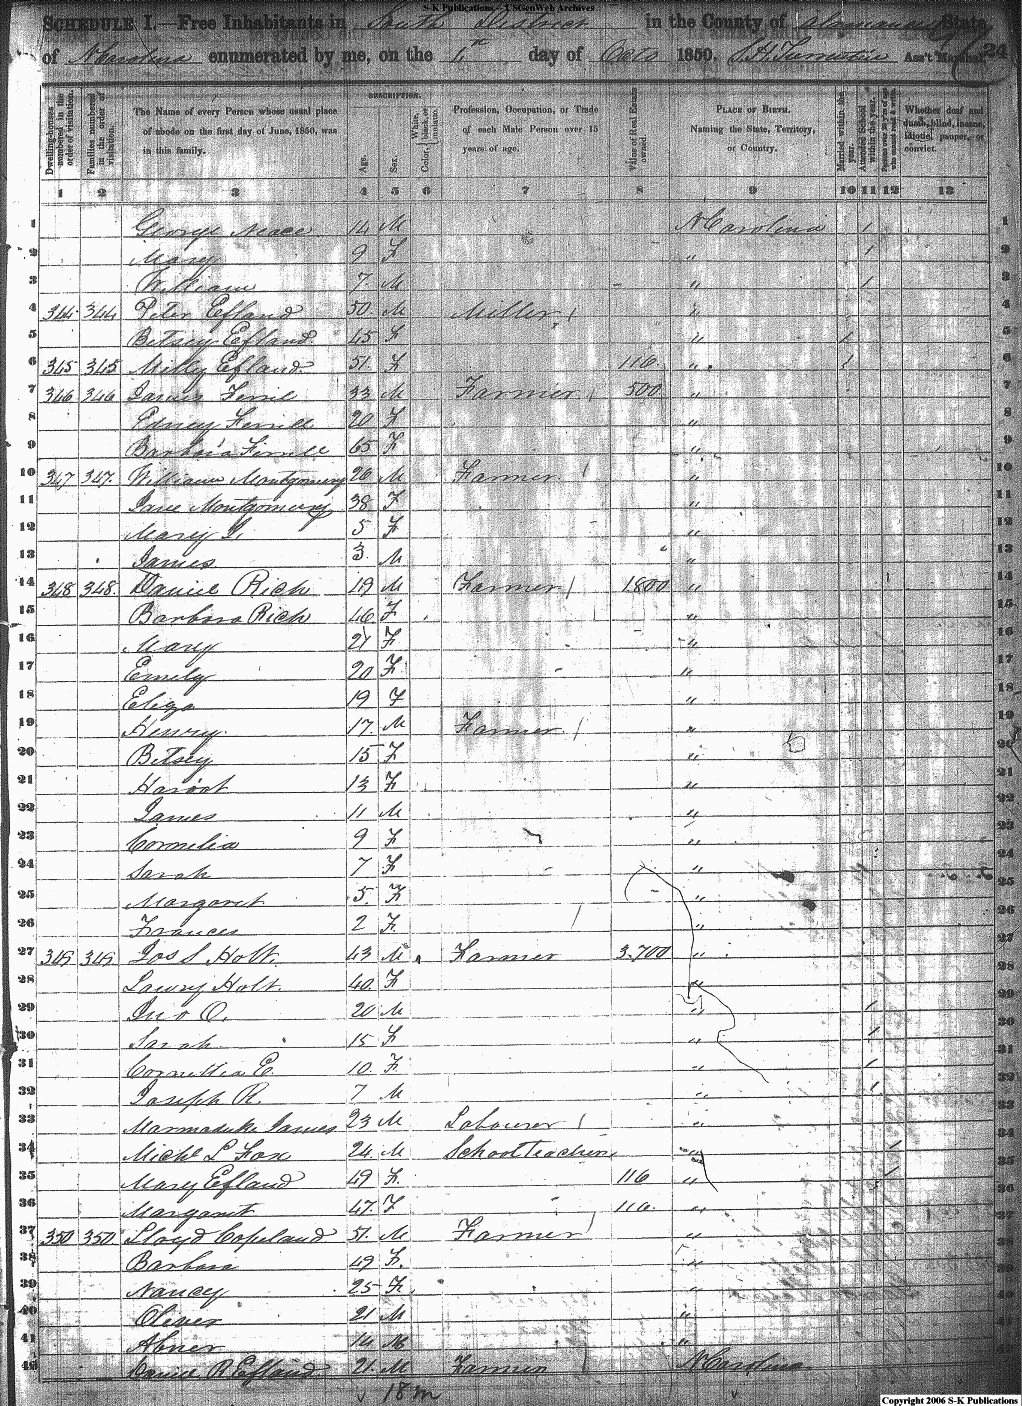 S-K Publications - USGenWeb Archives
SCHEDULE I.—Free Inhabitants in South District in the County of Alamance State
of N Carolina enumerated by me, on the 1st day of Octo 1850. Ass't Marshal. 24
Dwelling-houses numbered in the order of visitation.
Families numbered in the order of visitation.
The Name of every Person whose usual place of abode on the first day of June, 1850, was in this family.
DESCRIPTION.
Age.
Sex.
Color, White, black, or mulatto.
Profession, Occupation, or Trade of each Male Person over 15 years of age.
Value of Real Estate owned
PLACE OF BIRTH. Naming the State, Territory, or Country.
Married within the year.
Attended School within the year.
Persons over 20 y'rs of age who cannot read & write.
Whether deaf and dumb, blind, insane, idiotic, pauper, or convict.
1 2 3 4 5 6 7 8 9 10 11 12 13
1 George Neace 14 M N Carolina 1 1
2 Mary 9 F " 1 2
3 William 7 M " 1 3
4 344 344 Peter Efland 50 M Miller " 4
5 Betsey Efland 45 F " 1 5
6 345 345 Milly Efland 51 F 116 " 1 6
7 346 346 James Ferrill 33 M Farmer 500 " 7
8 Edney Ferrill 20 F " 8
9 Barbara Ferrill 65 F " 9
10 347 347 William Montgomery 26 M Farmer " 10
11 Jane Montgomery 38 F " 11
12 Mary J. 5 F " 12
13 James 3 M " 13
14 348 348 Daniel Rich 49 M Farmer 1800 " 14
15 Barbara Rich 46 F " 15
16 Mary 21 F " 16
17 Emily 20 F " 17
18 Eliza 19 F " 18
19 Henry 17 M Farmer " 19
20 Betsey 15 F " 20
21 Hariot 13 F " 21
22 James 11 M " 22
23 Cornelia 9 F " 23
24 Sarah 7 F " 24
25 Margaret 5 F " 25
26 Frances 2 F " 26
27 349 349 Jos S. Holt 43 M Farmer 3.700 " 27
28 Laury Holt 40 F " 28
29 Jno O. 20 M " 1 29
30 Sarah 15 F " 1 30
31 Cornellia E. 10 F " 1 31
32 Joseph R. 7 M " 1 32
33 Marmaduke James 23 M Labourer " 33
34 Michl L Fox 24 M School Teacher " 1 34
35 Mary Efland 49 F 116 " 1 35
36 Margaret 47 F 116 " 36
37 350 350 Lloyd Copeland 51 M Farmer " 37
38 Barbara 49 F " 38
39 Nancy 25 F " 39
40 Oliver 21 M "
41 Abner 14 M "
42 Daniel R Efland 21 M Farmer N Carolina
18 m
Copyright 2006 S-K Publications